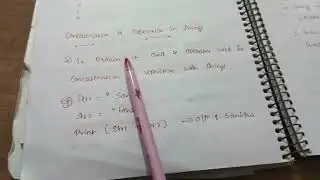 Concatenation & Repetition In Strings
In Python + and * operator used for
Concatenation & repetition with strings
eg Str1 = " San
Str2 = " itha
Print (Str1 + Str2) → O/P : Sanitha